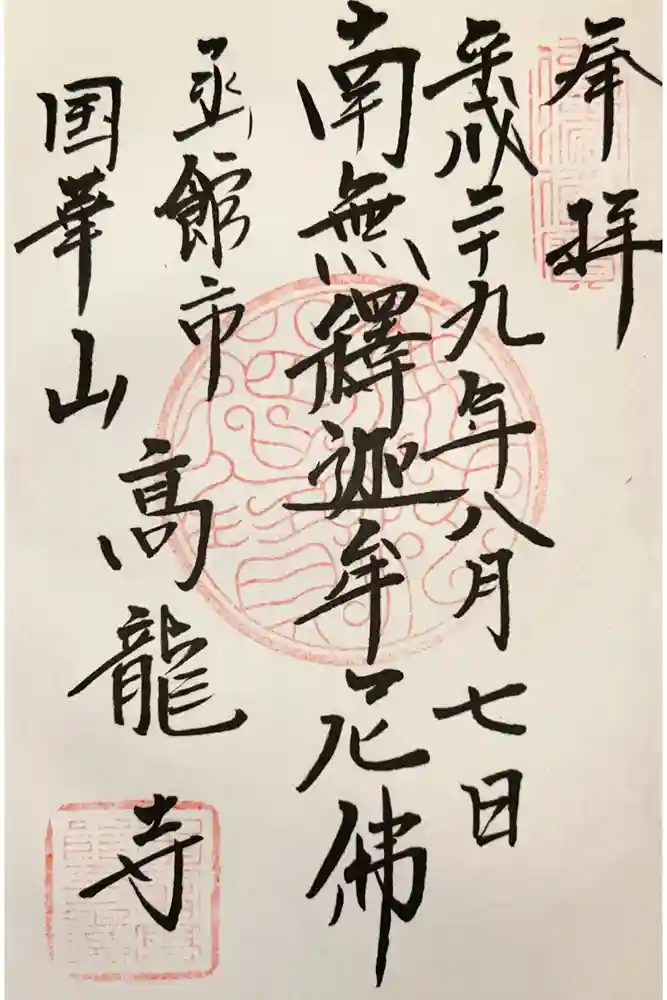 奉拝
平成二十九年八月七日
南無釋迦牟尼佛
函館市
国華山
高龍寺